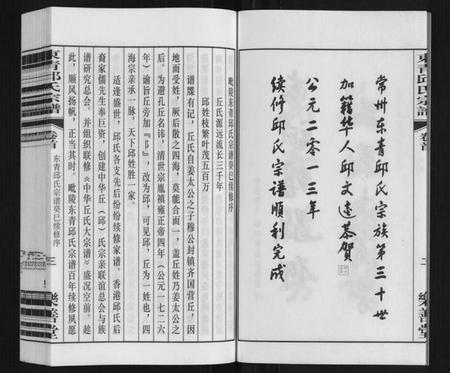 東青邱氏宗譜
卷首
二
樂善堂
常州东青邱氏宗族第三十世
加籍华人邱文達恭賀
公元二零一三年
续修邱氏宗譜順利完成
毗陵东青邱氏宗谱癸巳续修序
丘氏源远流长三千年
邱姓枝繁叶茂五百万
谱牒有记，丘氏自姜太公之子穆公封镇齐国营丘，因
地而受姓，厥后散之四海，莫能合而一，盖丘姓乃姜太公之
后。为避孔丘名讳，清世宗胤禛雍正帝四年（公元一七二六
年）谕旨丘旁加『阝』，改为邱，可见邱、丘为一姓也，四
海宗亲承一脉，天下邱姓胜一家。
适逢盛世，邱氏各支先后纷纷续修家谱。香港邱氏后
裔家儒先生奉巨资，创建中华丘（邱）氏宗亲联谊总会与族
谱研究总会。并组织联修《中华丘氏大宗谱》盛况空前。趁
此，顺风扬帆，正当其时。毗陵东青邱氏宗谱百年续修夙愿
東青邱氏宗譜
卷首
东青邱氏宗谱癸巳续修序
三
樂善堂